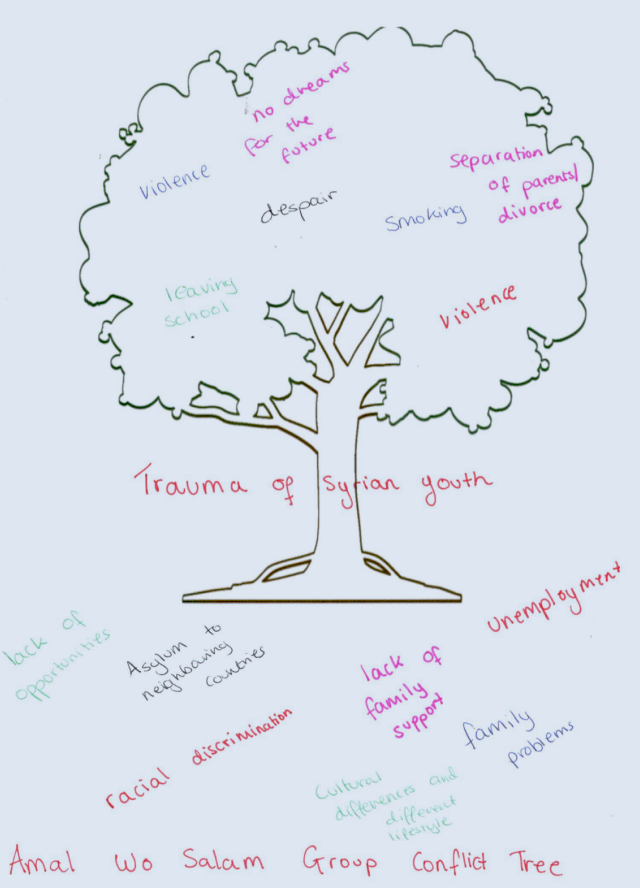 no dreams
for the
future
violence
despair
smoking
separation
of parents/
divorce
leaving
school
violence
Trauma of Syrian youth
unemployment
lack of
opportunities
Asylum to
neighbouring
countries
lack of
family
support
family
problems
racial discrimination
Cultural
differences and
different
lifestyle
Amal Wo Salam Group Conflict Tree